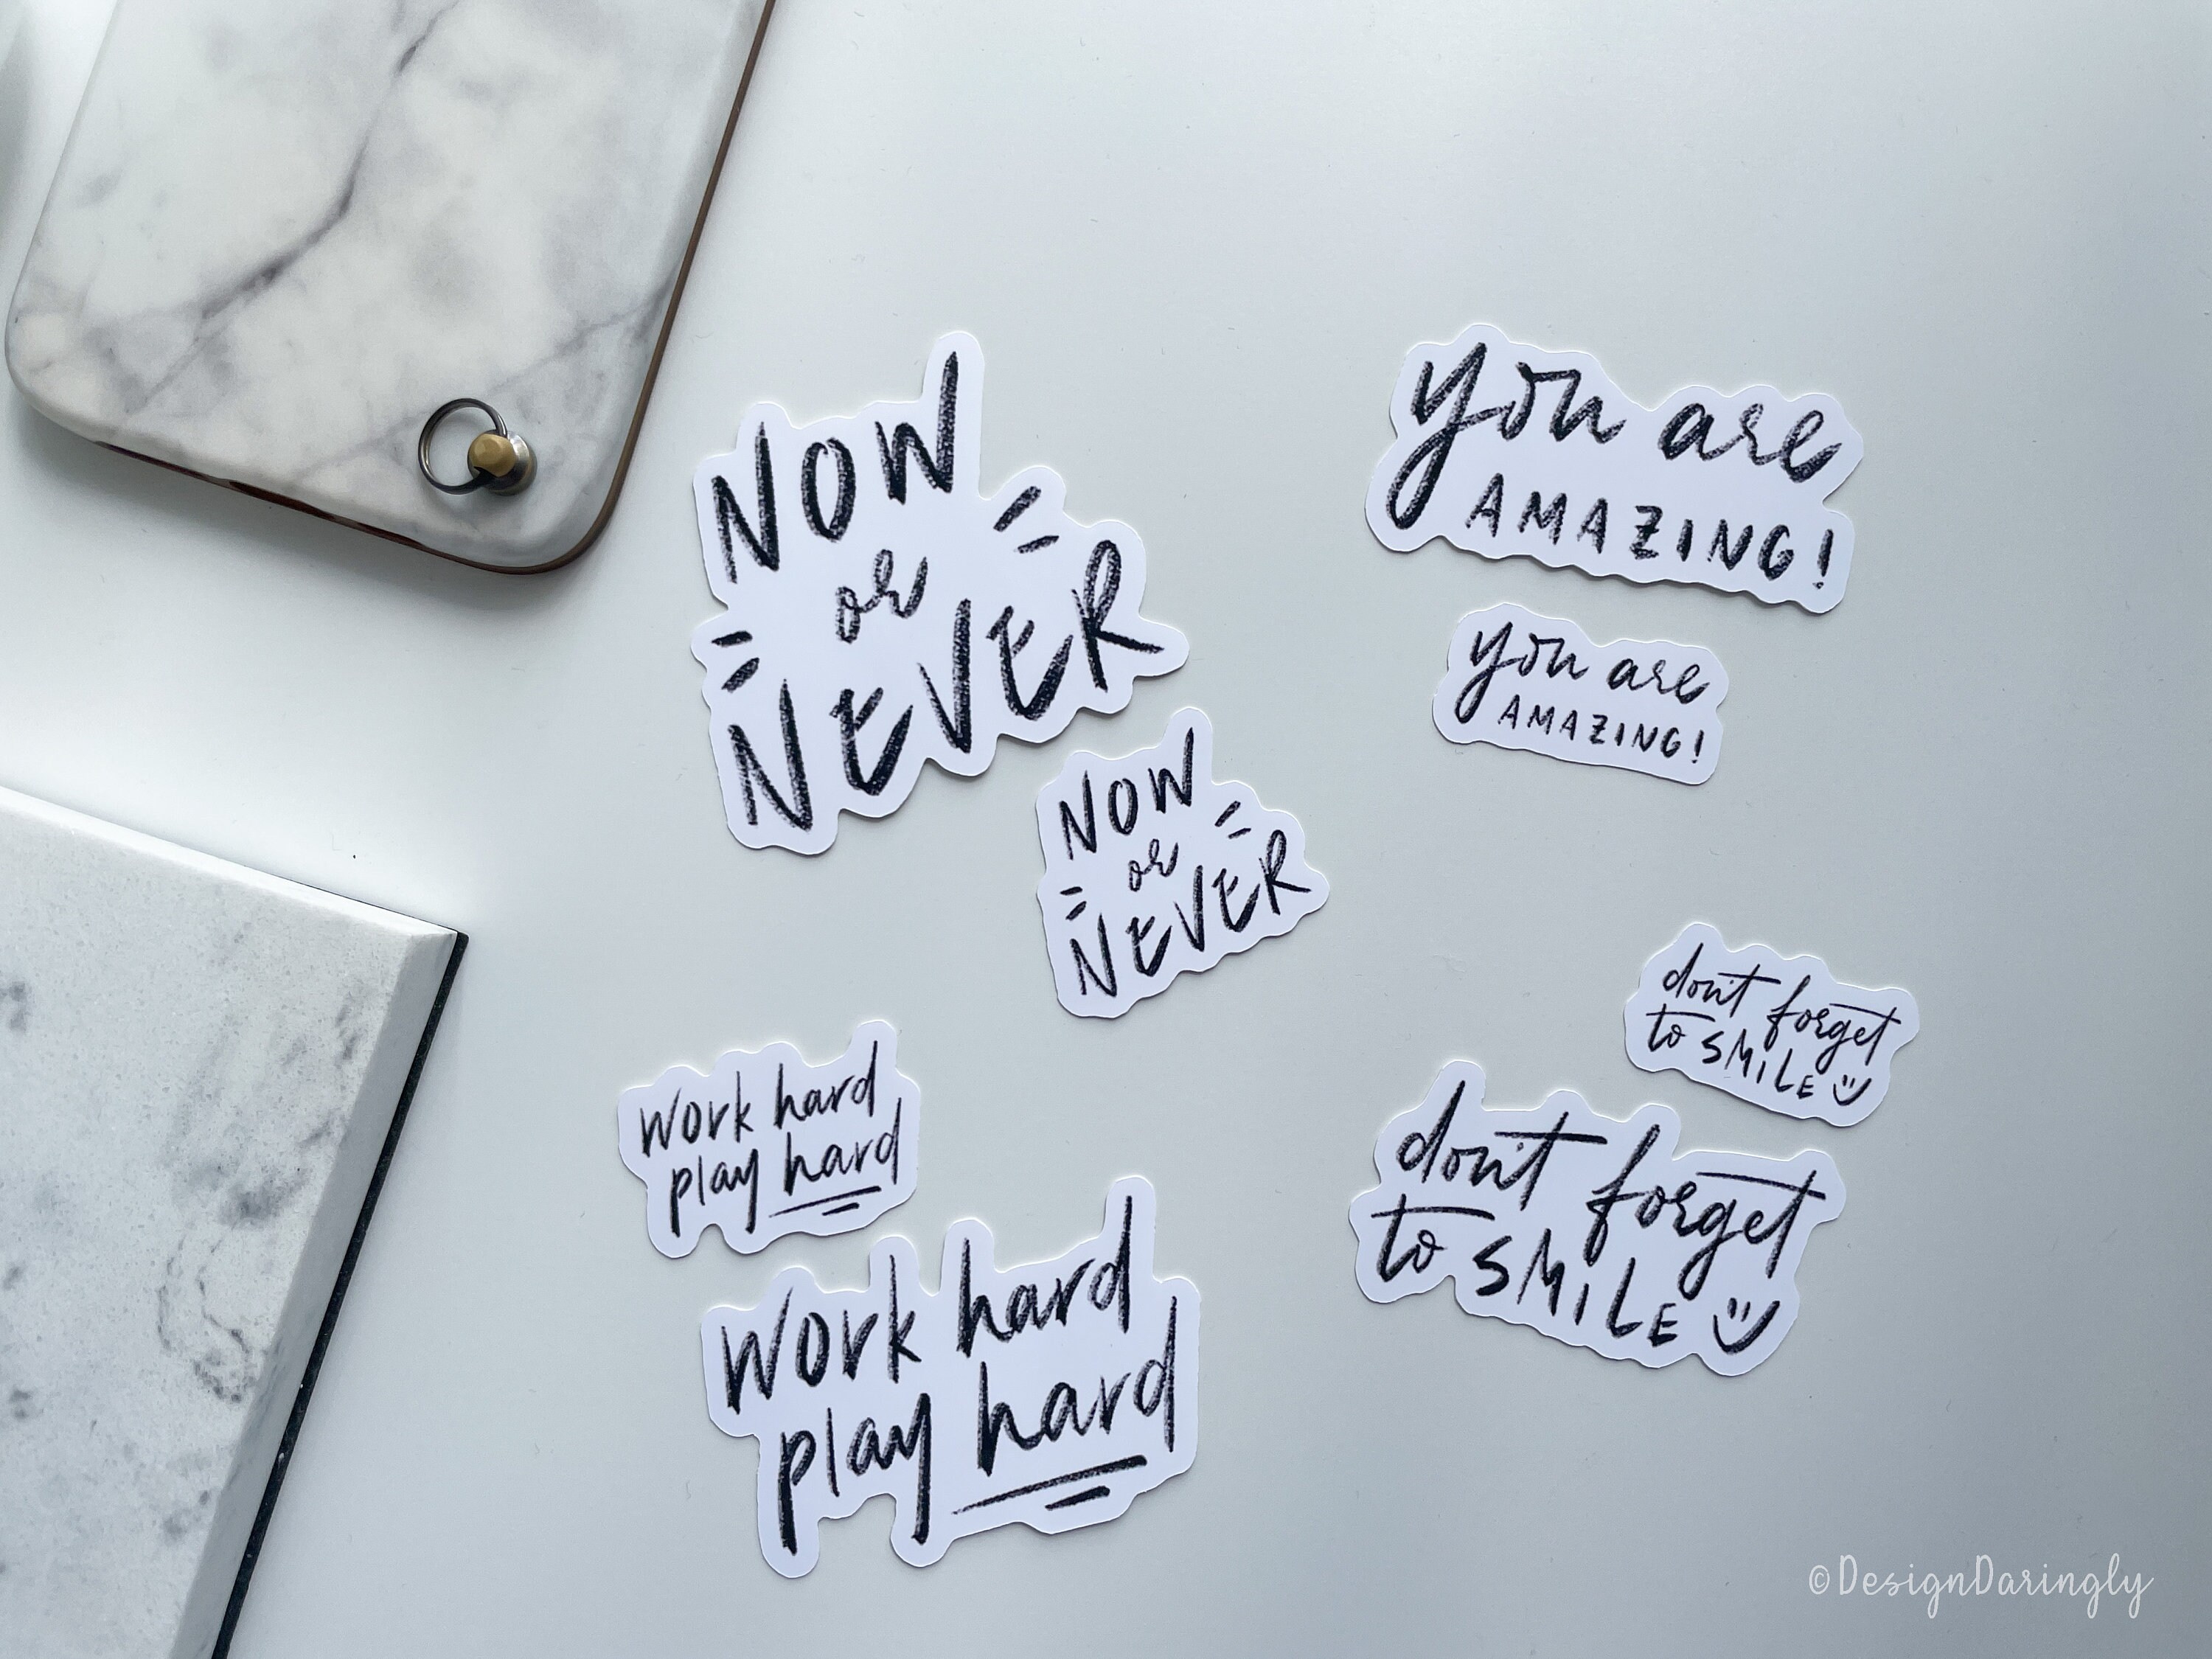 NOW
or
NEVER
you are
AMAZING!
you are
AMAZING!
NOW
or
NEVER
don't forget
to SMILE
work hard
play hard
don't forget
to SMILE
work hard
play hard
©DesignDaringly